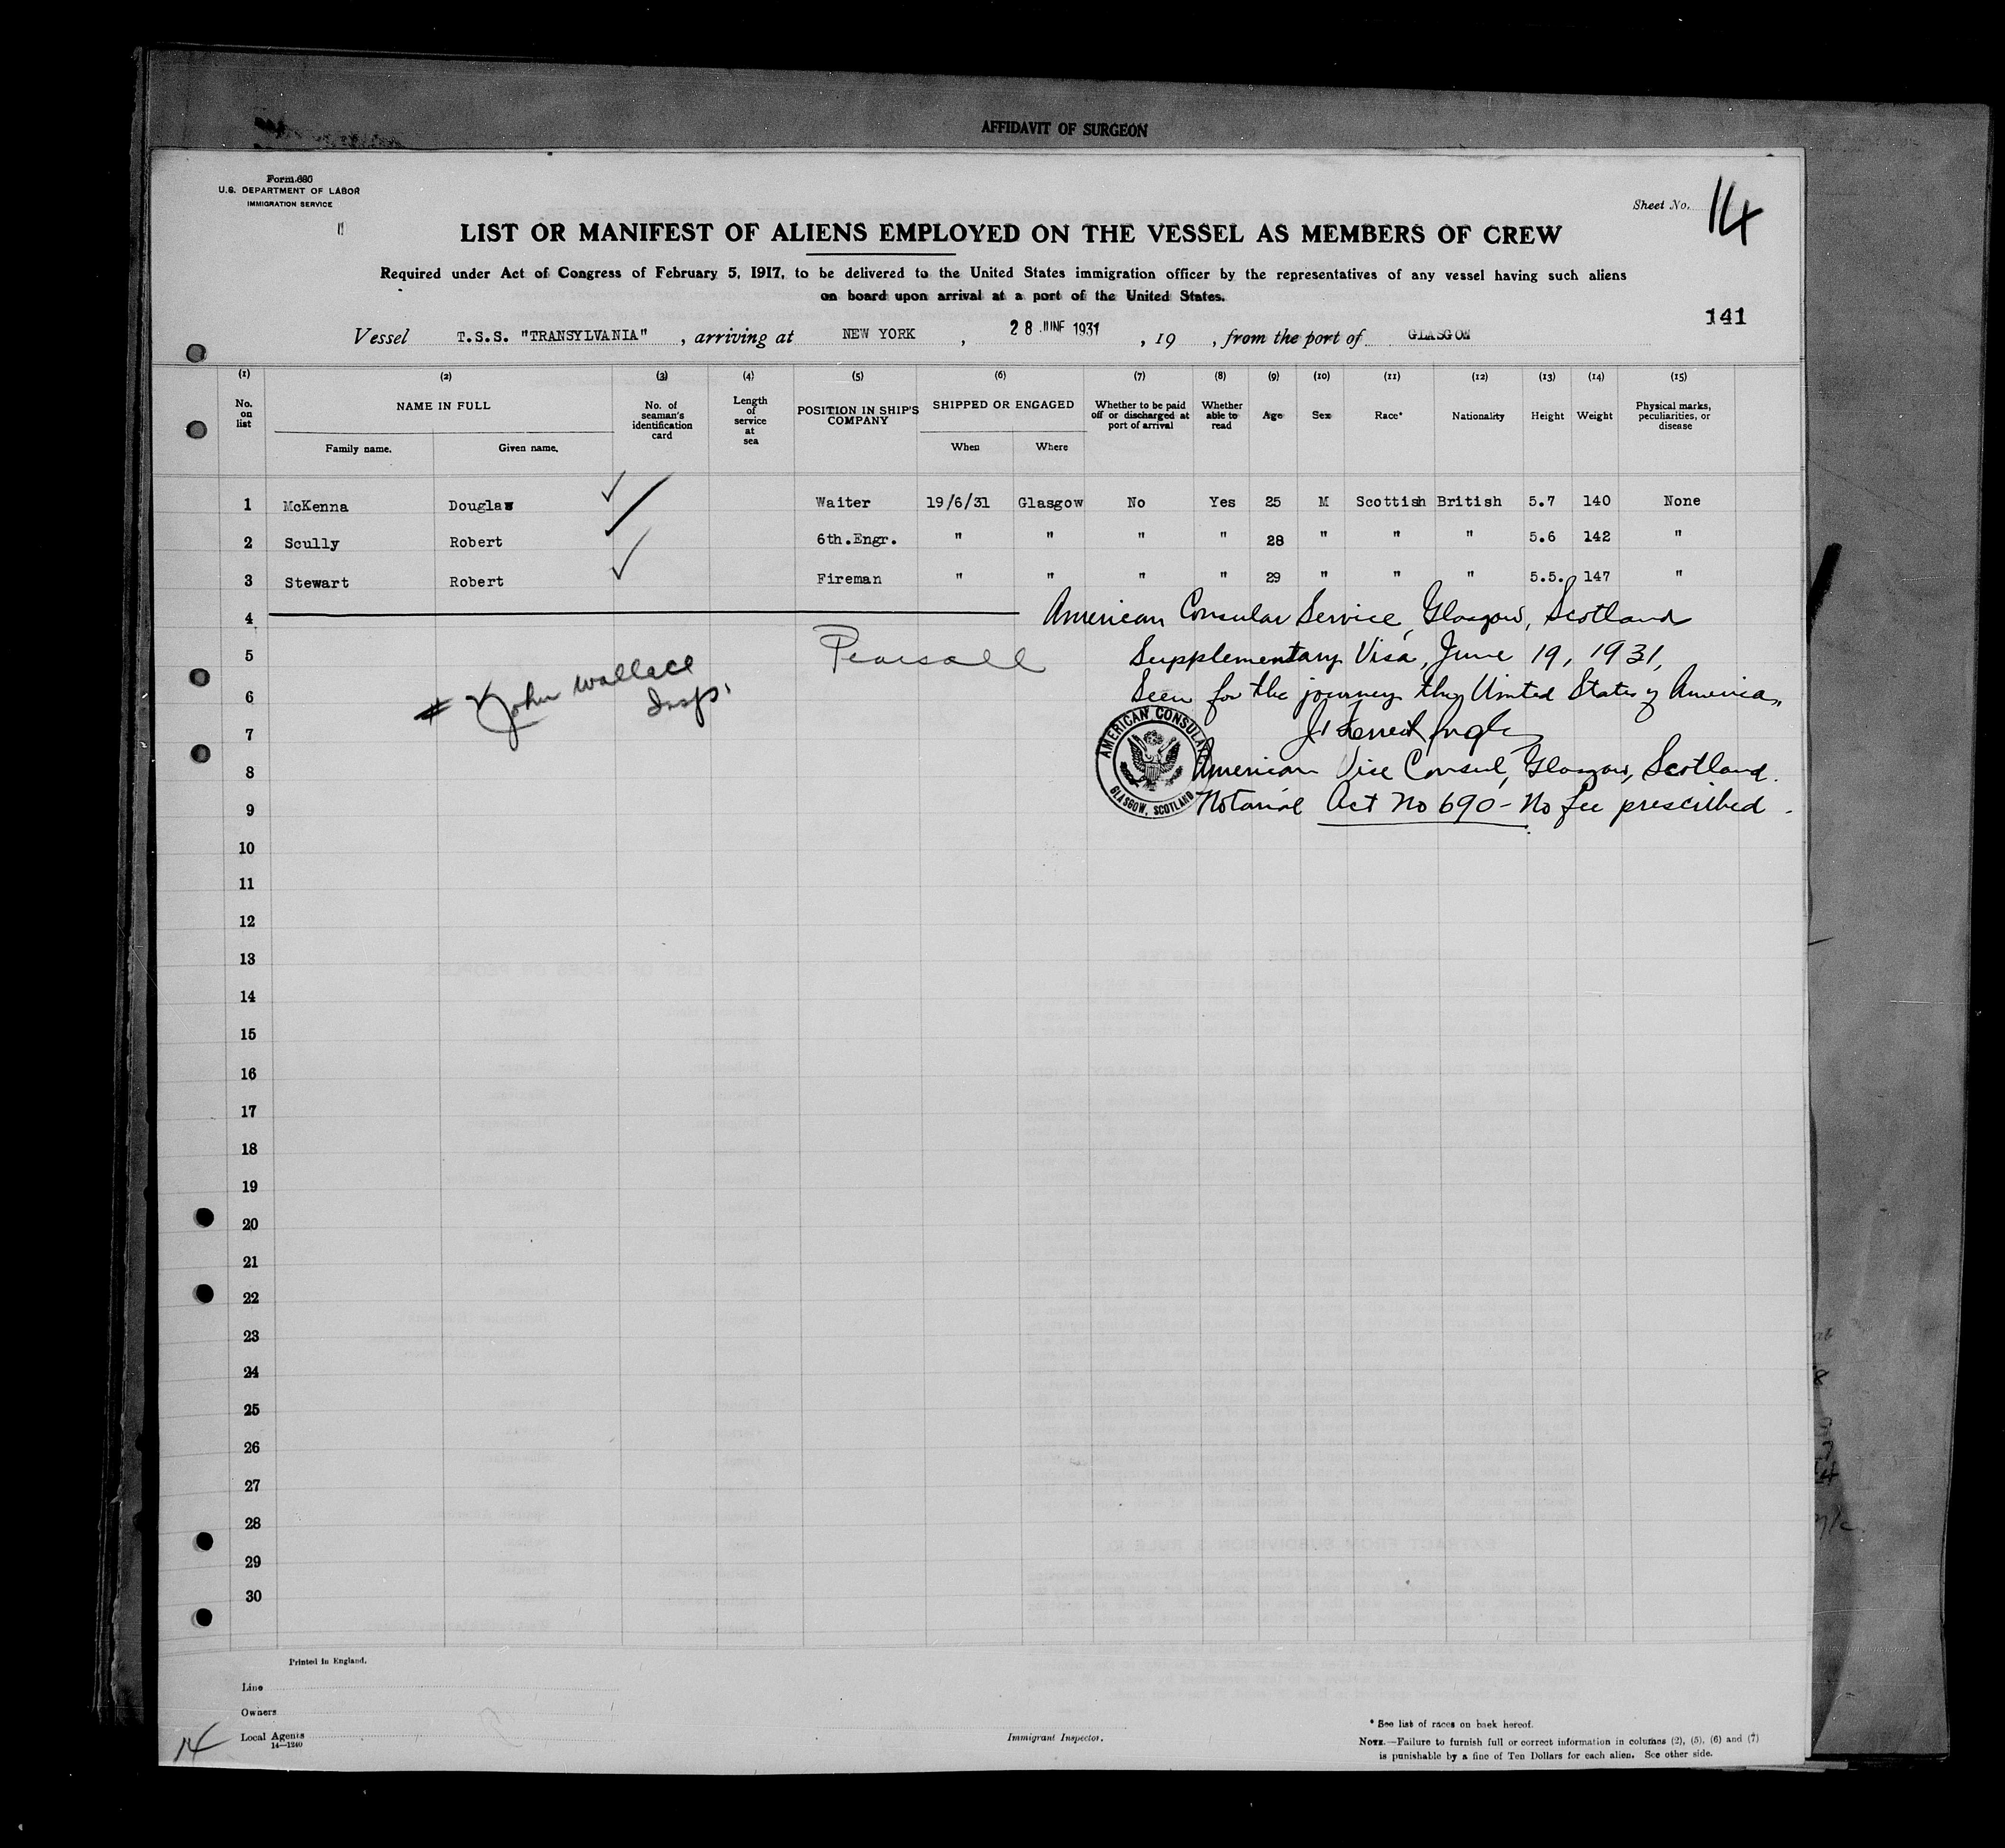 AFFIDAVIT OF SURGEON
Form 680
U.S. DEPARTMENT OF LABOR
IMMIGRATION SERVICE
Sheet No. 14
LIST OR MANIFEST OF ALIENS EMPLOYED ON THE VESSEL AS MEMBERS OF CREW
Required under Act of Congress of February 5, 1917, to be delivered to the United States immigration officer by the representatives of any vessel having such aliens
on board upon arrival at a port of the United States.
141
Vessel T.S.S. "TRANSYLVANIA", arriving at NEW YORK, 28 JUNE 1931, 19 , from the port of GLASGOW
(1) (2) (3) (4) (5) (6) (7) (8) (9) (10) (11) (12) (13) (14) (15)
No. on list NAME IN FULL Family name. Given name. No. of seaman's identification card Length of service at sea POSITION IN SHIP'S COMPANY SHIPPED OR ENGAGED When Where Whether to be paid off or discharged at port of arrival Whether able to read Age Sex Race* Nationality Height Weight Physical marks, peculiarities, or disease
1 McKenna Douglas Waiter 19/6/31 Glasgow No Yes 25 M Scottish British 5.7 140 None
2 Scully Robert 6th.Engr. " " " " 28 " " " 5.6 142 "
3 Stewart Robert Fireman " " " " 29 " " " 5.5. 147 "
4 American Consular Service, Glasgow, Scotland
5 Pearsall Supplementary Visa, June 19, 1931,
# John Wallace
Insp.
6 Seen for the journey to the United States of America,
7
AMERICAN CONSULATE
GLASGOW, SCOTLAND
8 American Vice Consul, Glasgow, Scotland.
9 Notarial Act No 690 - No fee prescribed.
10
11
12
13
14
15
16
17
18
19
20
21
22
23
24
25
26
27
28
29
30
Printed in England.
Line
Owners
Local Agents
14—1240
14
Immigrant Inspector.
* See list of races on back hereof.
NOTE.—Failure to furnish full or correct information in columns (2), (5), (6) and (7)
is punishable by a fine of Ten Dollars for each alien. See other side.